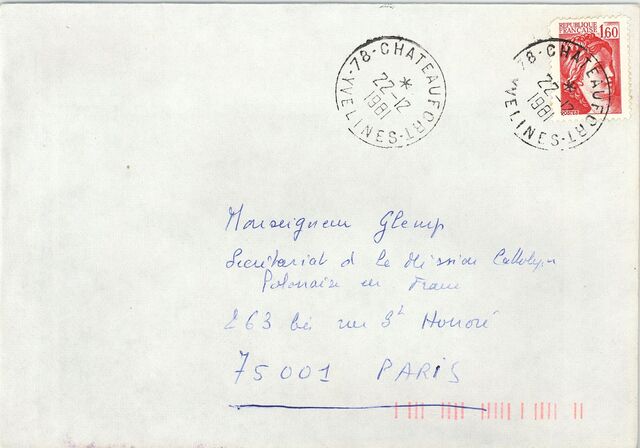 78-CHATEAUFORT-YVELINES
*
22-12
1981
REPUBLIQUE
FRANÇAISE
1,60
78-CHATEAUFORT-YVELINES
*
22-12
1981
Monseigneur Glemp
Secrétariat d la Mission
Polonaise en France
263 bis rue St Honoré
75001 PARIS